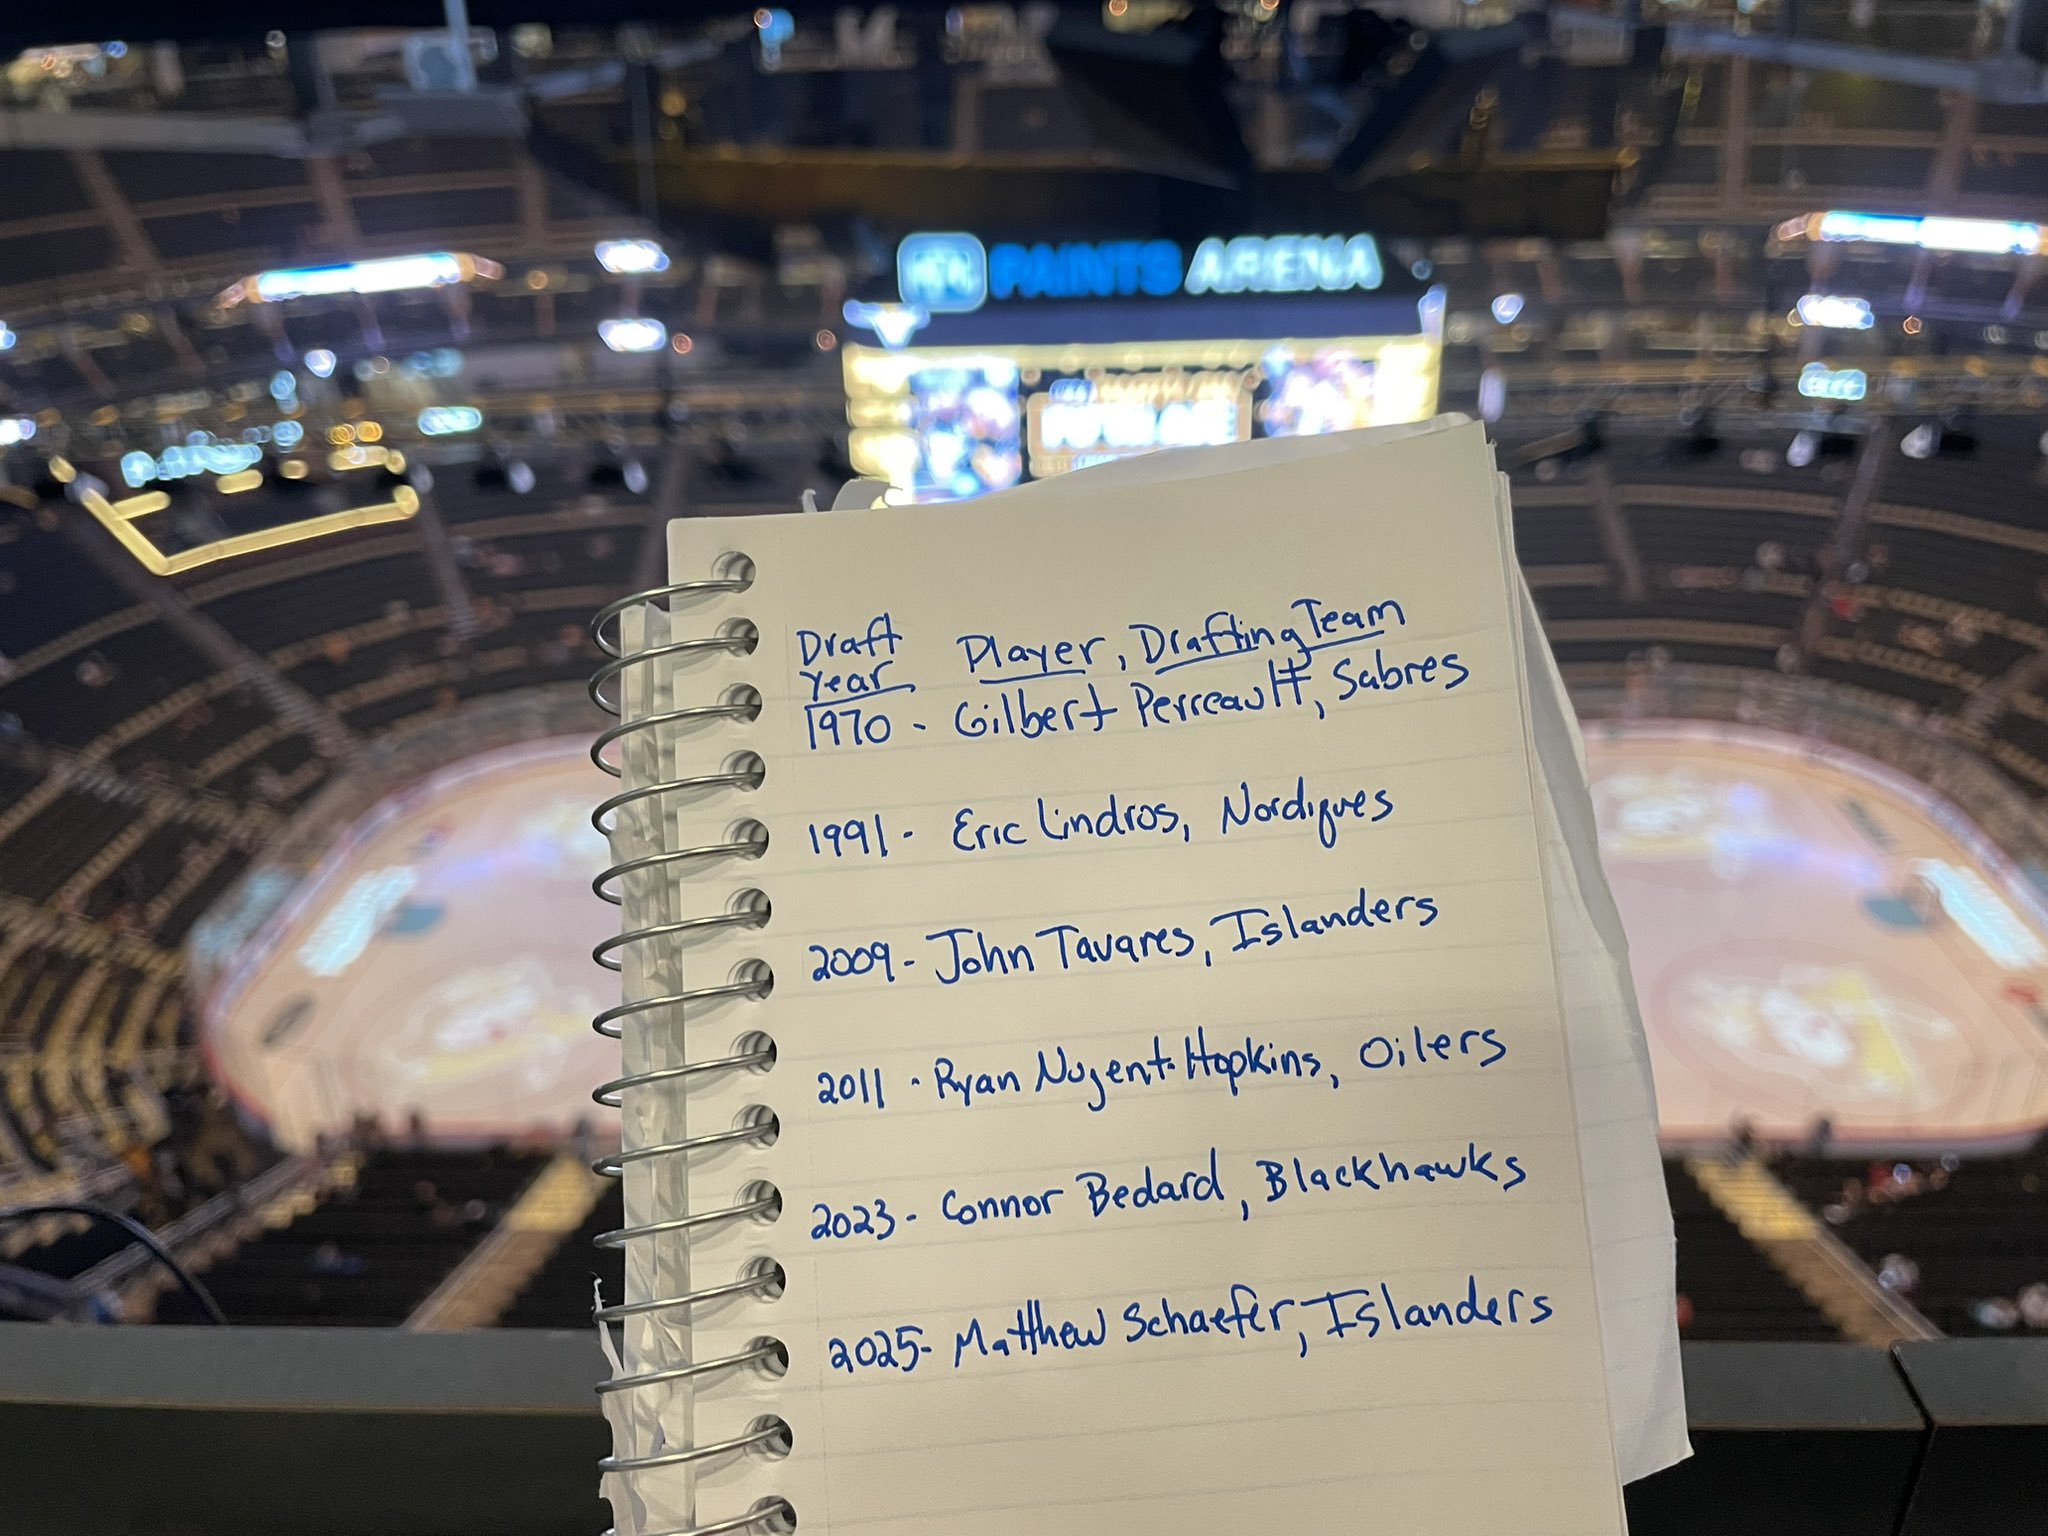 PAINTS ARENA
Draft Year Player, Drafting Team
1970 - Gilbert Perreault, Sabres
1991 - Eric Lindros, Nordiques
2009 - John Tavares, Islanders
2011 - Ryan Nugent-Hopkins, Oilers
2023 - Connor Bedard, Blackhawks
2025 - Matthew Schaefer, Islanders